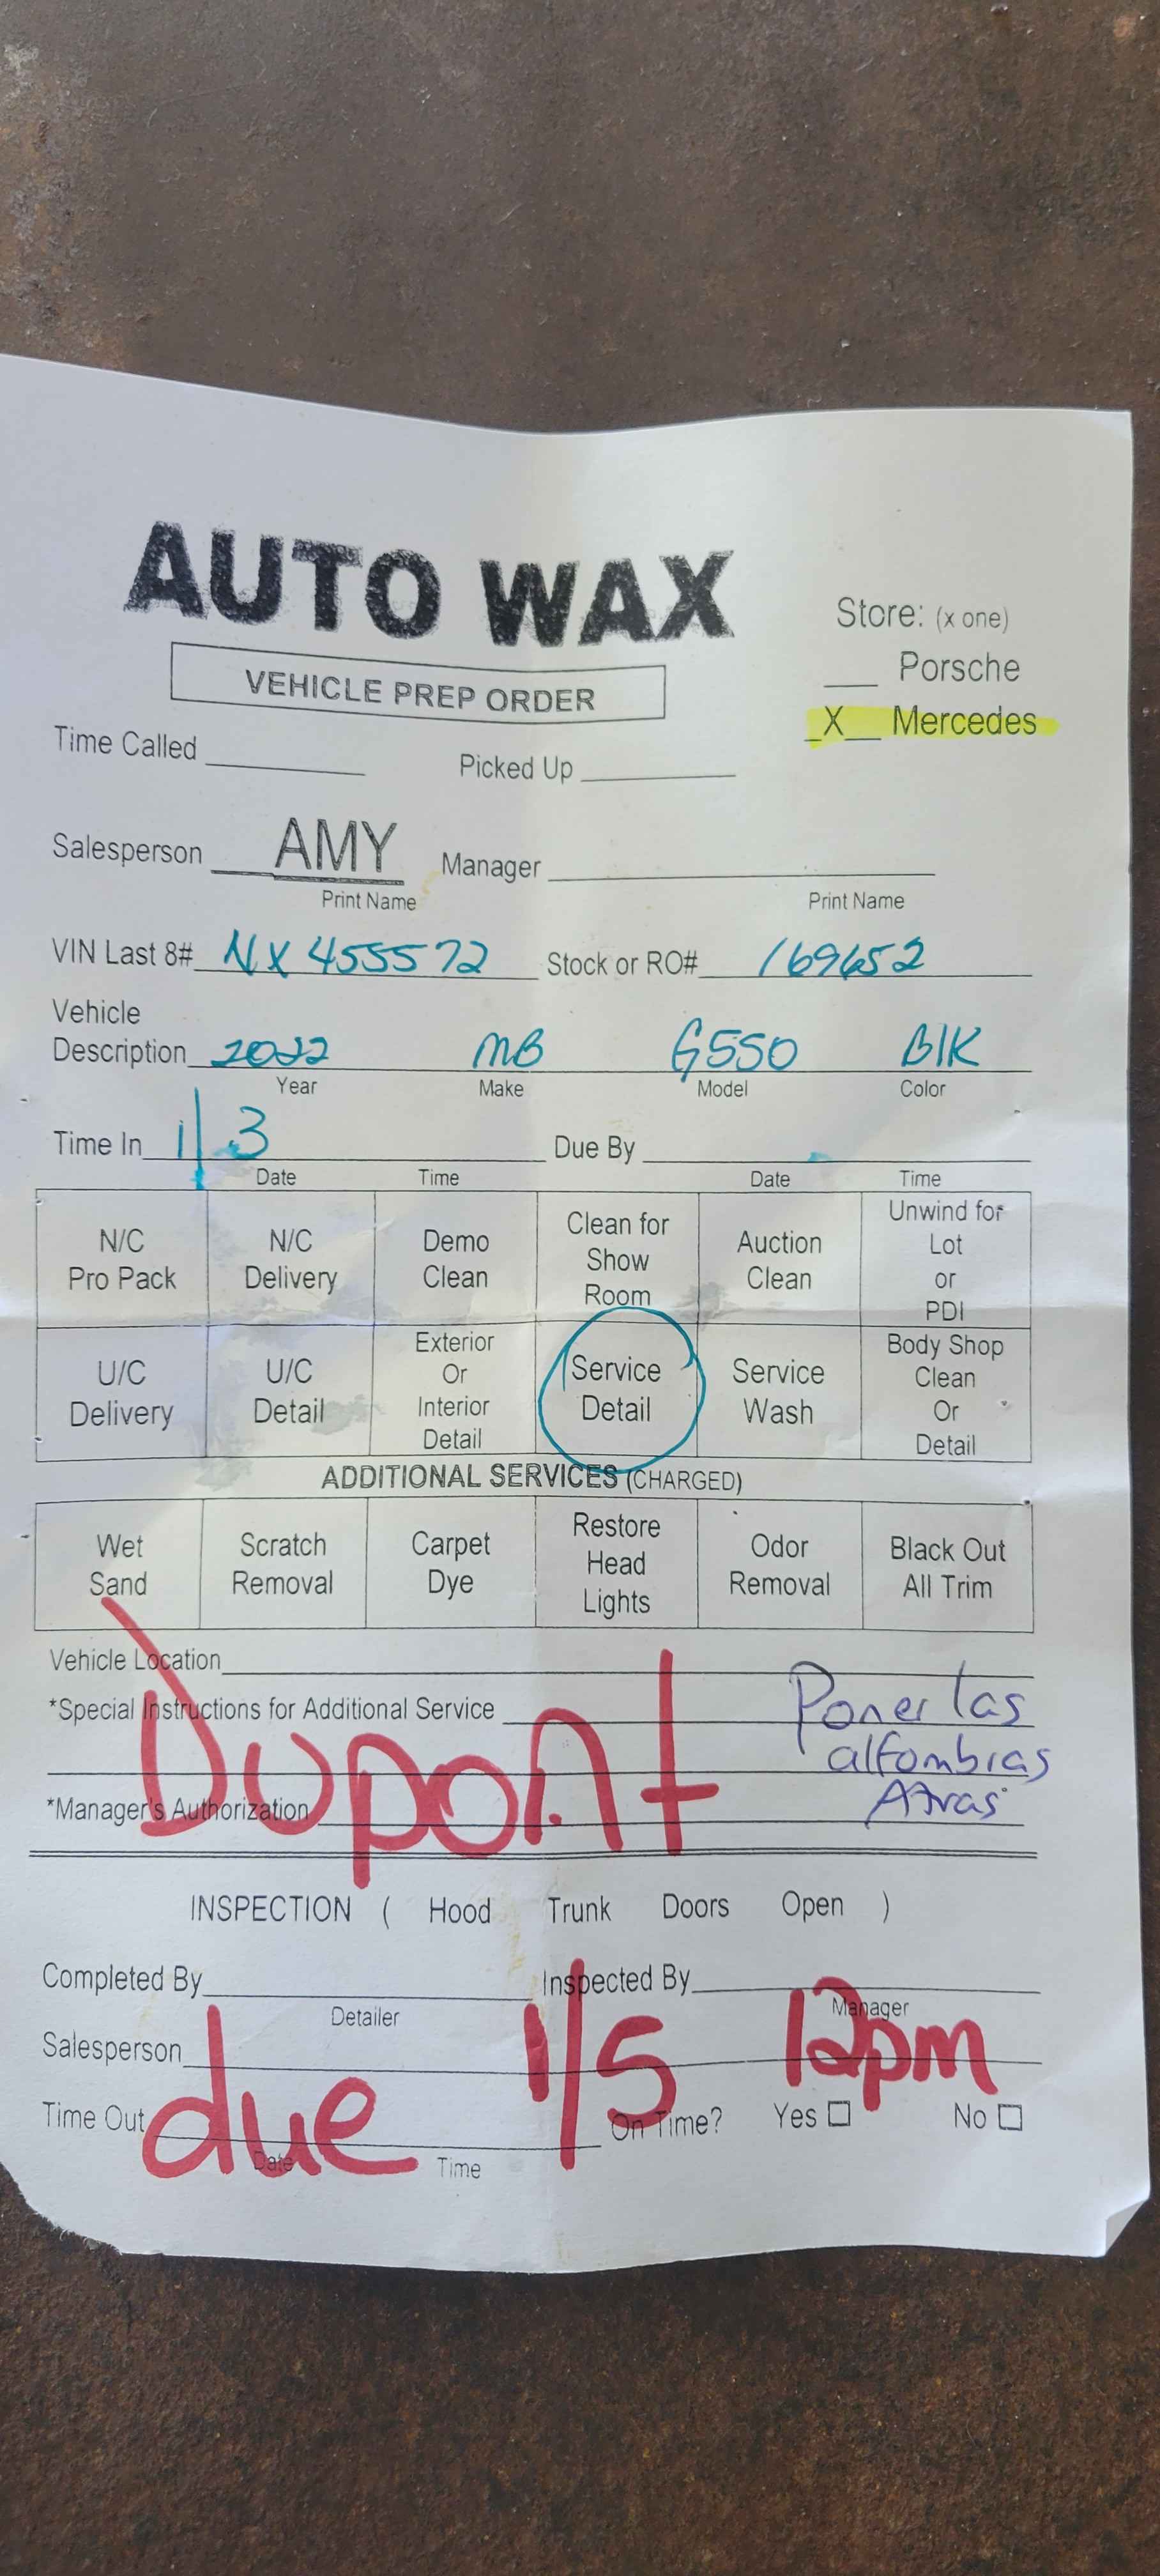 AUTO WAX
VEHICLE PREP ORDER
Store: (x one)
___ Porsche
_X__ Mercedes
Time Called ______ Picked Up ______
Salesperson AMY Manager ______
Print Name Print Name
VIN Last 8# NX455572 Stock or RO# 169652
Vehicle
Description 2022 MB G550 BlK
Year Make Model Color
Time In 1/3 Due By ______
Date Time Date Time
N/C Pro Pack N/C Delivery Demo Clean Clean for Show Room Auction Clean Unwind for Lot or PDI
U/C Delivery U/C Detail Exterior Or Interior Detail Service Detail Service Wash Body Shop Clean Or Detail
ADDITIONAL SERVICES (CHARGED)
Wet Sand Scratch Removal Carpet Dye Restore Head Lights Odor Removal Black Out All Trim
Vehicle Location ______
*Special Instructions for Additional Service ______
Poner las
alfombras
Atras
Dupont
*Manager's Authorization ______
INSPECTION ( Hood Trunk Doors Open )
Completed By ______ Inspected By ______
Detailer Manager
Salesperson ______
due 1/5 12pm
Time Out ______ On Time? Yes ☐ No ☐
Date Time